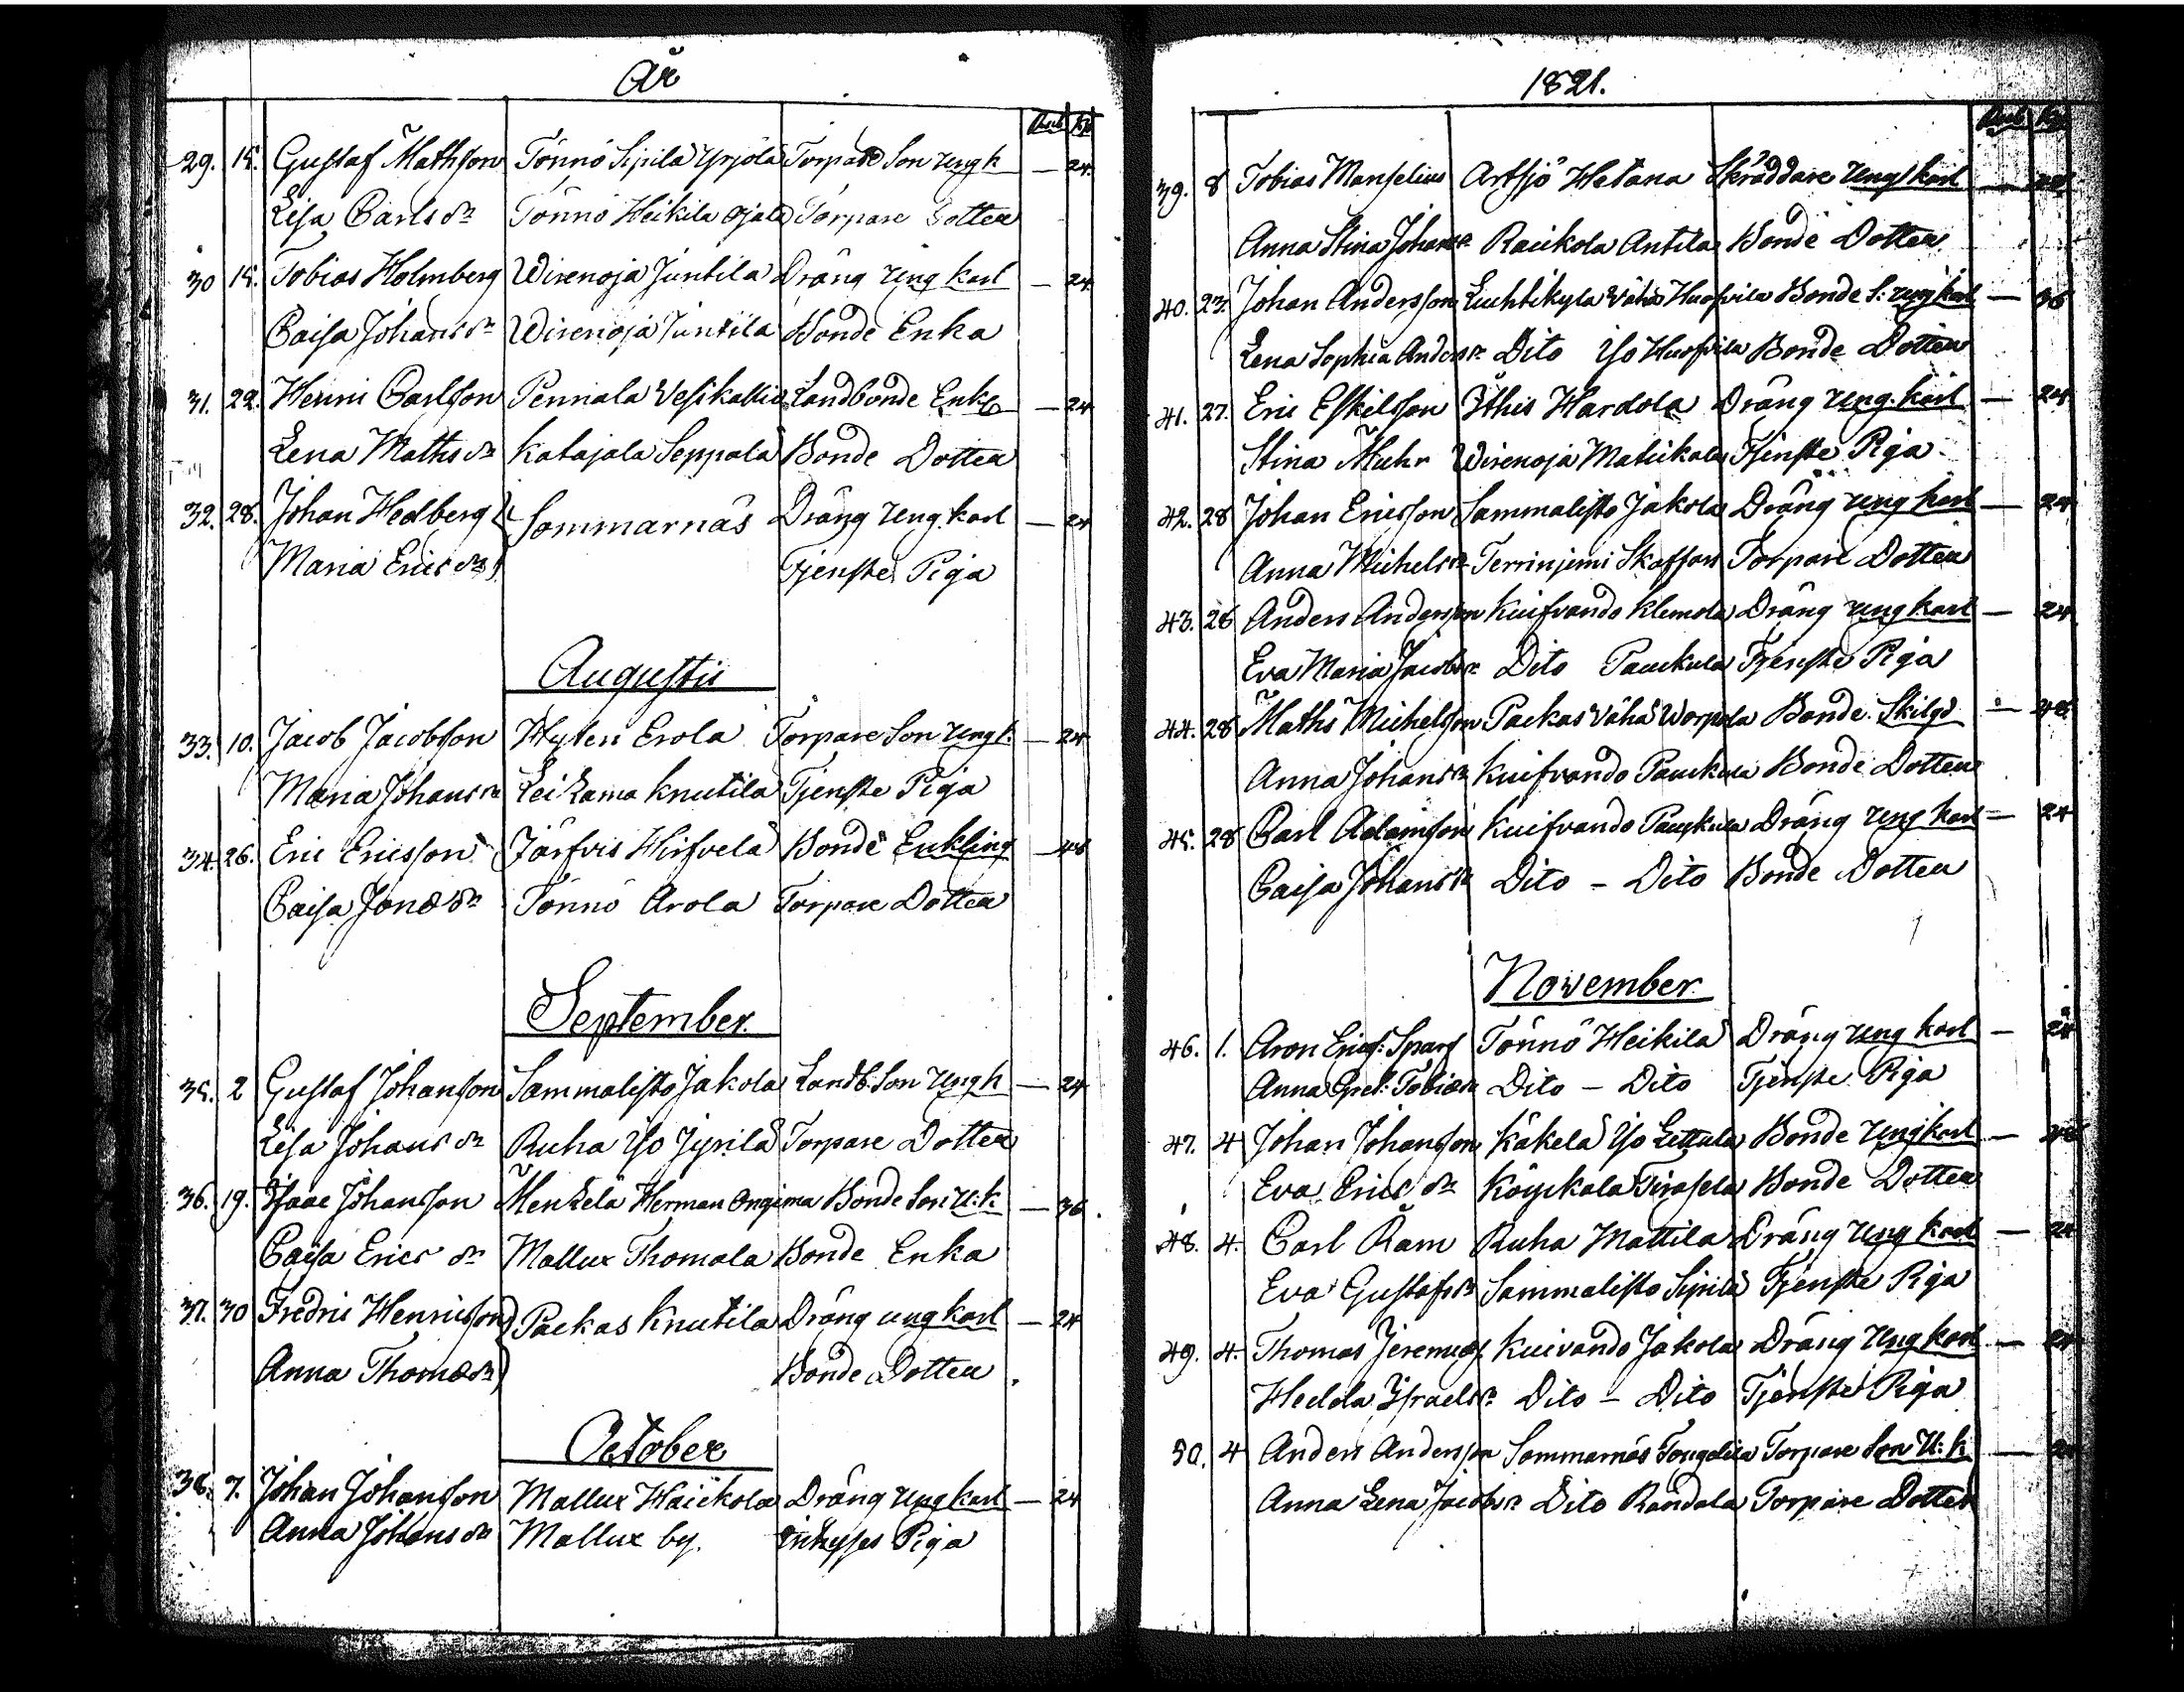 År
Rub Kop
29. 15. Gustaf Mathsson Tönnö Sipilä Yrjölä Torpare Son ung k — 24
Lisa Carls dr Tönnö Heikilä Ojala Torpare Dotter
30 15. Tobias Holmberg Wirenoja Juntila Dräng ung karl — 24
Caisa Johans dr Wirenoja Juntila Bonde Enka
31. 22. Henric Carlsson Pennala Vesikallio Landbonde Enkl — 24
Lena Maths dr Katajala Seppälä Bonde Dotter
32. 28. Johan Hedberg Sommarnäs Dräng ung karl — 24
Maria Erics dr Tjenste Piga
Augusti
33. 10. Jacob Jacobsson Erola Torpare Son ung k. — 24
Maria Johans dr Knutila Tjenste Piga
34. 26. Eric Ericsson Järfvis Hirfvelä Bonde Enkling — 48
Caisa Jonæ dr Tönnö Arola Torpare Dotter
September
35. 2 Gustaf Johansson Sammalisto Jakola Landb. Son ung k — 24
Lisa Johans dr Ruha Yso Jyrilä Torpare Dotter
36. 19. Isaac Johansson Menkelä Herman Ongima Bonde Son U:k — 36.
Caisa Erics dr Mallux Thomala Bonde Enka
37. 30 Fredric Henricsson Packas Knutila Dräng ung karl — 24
Anna Thomæ dr Bonde Dotter
October
38. 7. Johan Johansson Mallux Haickola Dräng ung karl — 24
Anna Johans dr Mallux by. Inhyses Piga
1821.
Rub Kop
39. 8 Tobias Manselius Artsjö Hatana Skräddare ung karl —
Anna Stina Johans dr Raickola Antila Bonde Dotter
40. 23. Johan Andersson Luhtikylä Vähä Huofvila Bonde S: ung karl — 36
Lena Sophia Anders dr Dito Yso Huofvila Bonde Dotter
41. 27. Eric Eskilsson Ithis Hardola Dräng ung karl — 24
Stina Muhr Wirenoja Matickala Tjenste Piga
42. 28 Johan Ericsson Sammalisto Jakola Dräng ung karl — 24
Anna Michels dr Terrinjemi Skaffars Torpare Dotter
43. 28 Anders Andersson Kuifvando Klemola Dräng ung karl — 24
Eva Maria Jacobs dr Dito Pauckula Tjenste Piga
44. 28 Maths Michelsson Packas Vähä Worpola Bonde Skilgd — 48
Anna Johans dr Kuifvando Pauckula Bonde Dotter
45. 28 Carl Adamsson Kuifvando Pauckula Dräng ung karl — 24
Caisa Johans dr Dito — Dito Bonde Dotter
November
46. 1. Aron Erics: Sparf Tönnö Heikilä Dräng ung karl — 24
Anna Gret: Tobiæ dr Dito — Dito Tjenste Piga
47. 4 Johan Johansson Käkelä Yso Lettula Bonde ung karl — 48
Eva Erics dr Köyckälä Tirasela Bonde Dotter
48. 4. Carl Ram Ruha Mattila Dräng ung karl — 24
Eva Gustafs dr Sammalisto Sipilä Tjenste Piga
49. 4. Thomas Jeremiæs Kuivando Jakola Dräng ung karl — 24
Hedda Israels dr Dito — Dito Tjenste Piga
50. 4 Anders Andersson Sommarnäs Torpare Son U:k — 24
Anna Lena Jacobs dr Dito Randala Torpare Dotter